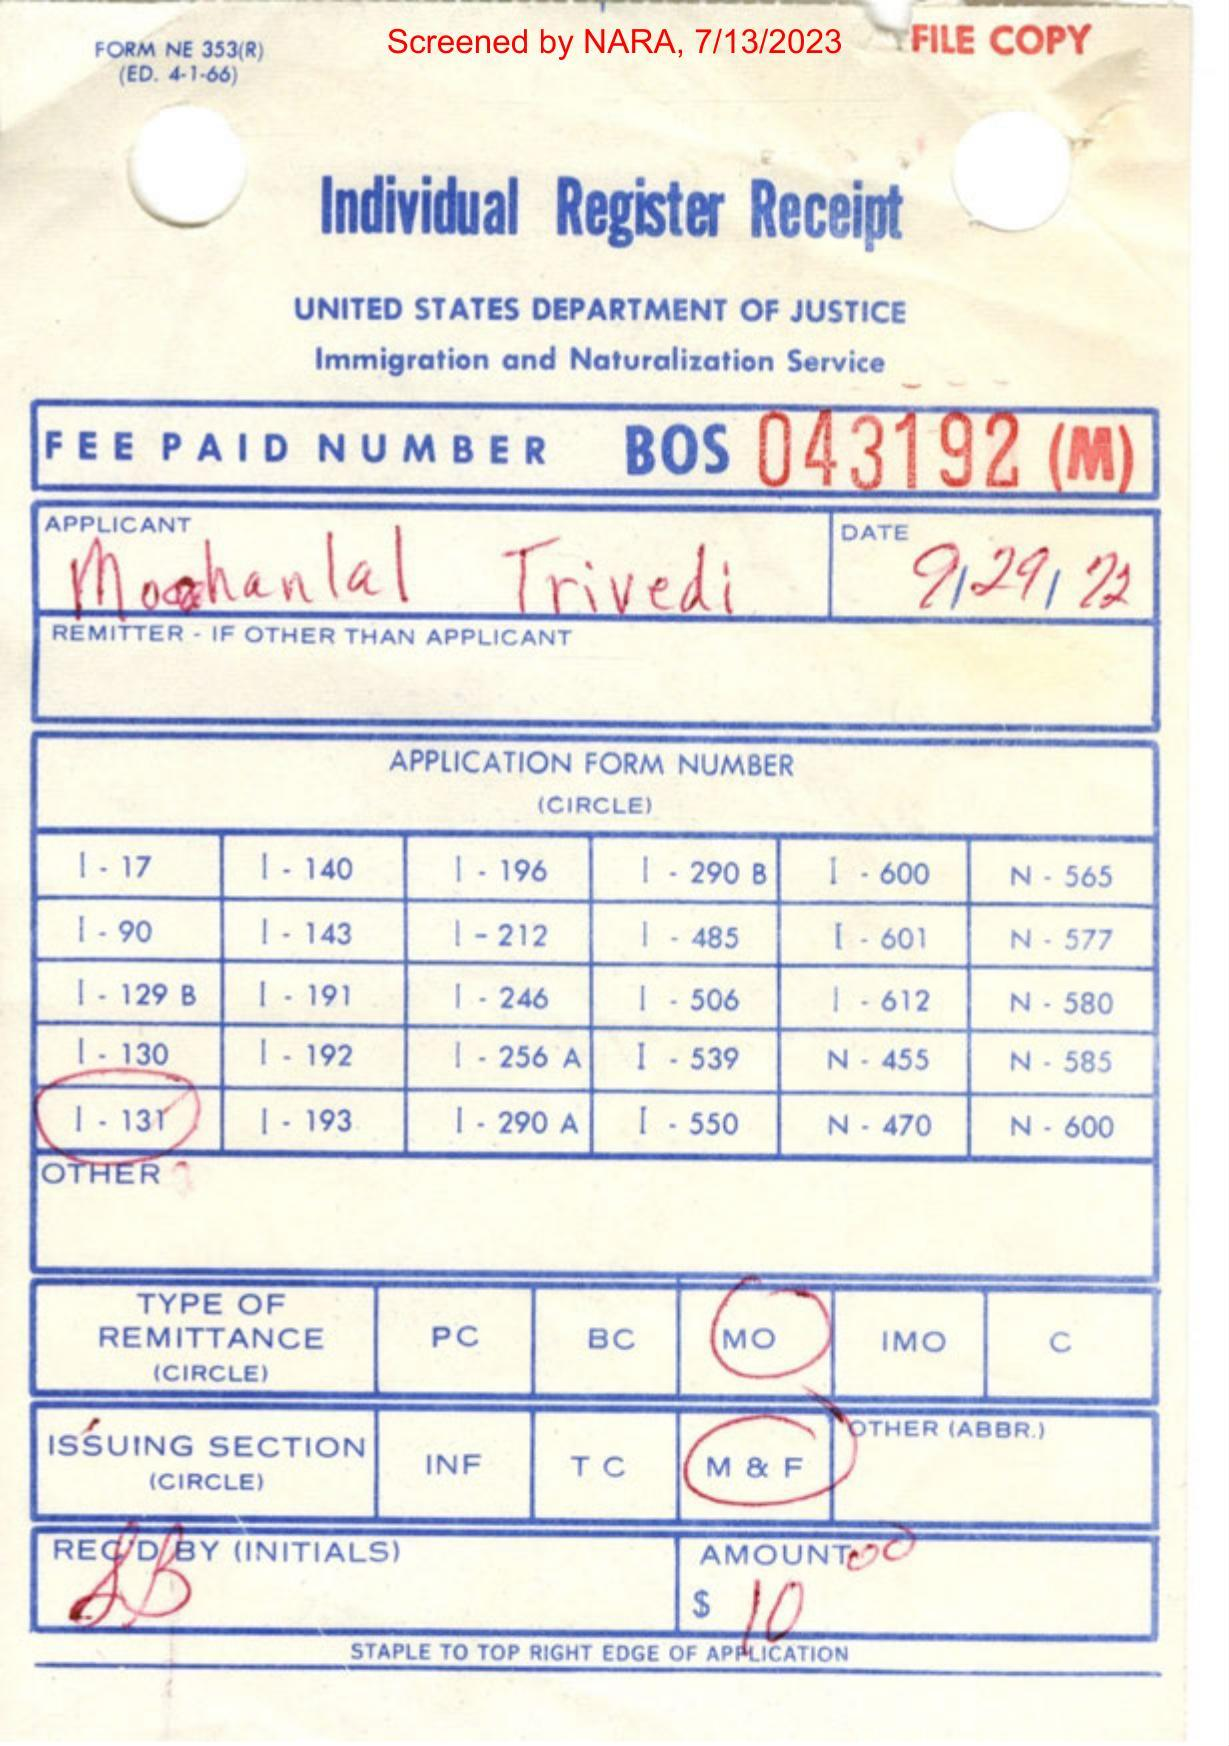 FORM NE 353(R)
(ED. 4-1-66)
Screened by NARA, 7/13/2023
FILE COPY
Individual Register Receipt
UNITED STATES DEPARTMENT OF JUSTICE
Immigration and Naturalization Service
FEE PAID NUMBER BOS 043192 (M)
APPLICANT
DATE
Trivedi 9/29/72
REMITTER - IF OTHER THAN APPLICANT
APPLICATION FORM NUMBER
(CIRCLE)
I - 17 I - 140 I - 196 I - 290 B I - 600 N - 565
I - 90 I - 143 I - 212 I - 485 I - 601 N - 577
I - 129 B I - 191 I - 246 I - 506 I - 612 N - 580
I - 130 I - 192 I - 256 A I - 539 N - 455 N - 585
I - 131 I - 193 I - 290 A I - 550 N - 470 N - 600
OTHER
TYPE OF
REMITTANCE
(CIRCLE)
PC BC MO IMO C
ISSUING SECTION
(CIRCLE)
INF T C M & F
OTHER (ABBR.)
REC'D BY (INITIALS)
SB
AMOUNT
$ 10 00
STAPLE TO TOP RIGHT EDGE OF APPLICATION